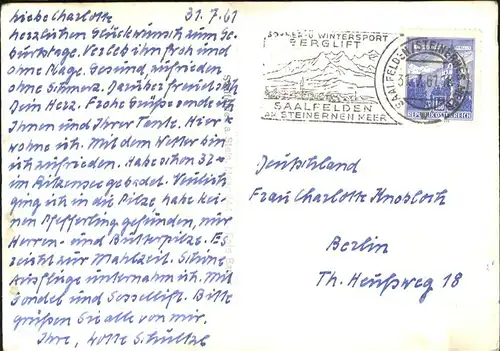 liebe Charlotte 31.7.61
herzlichen Glückwunsch zum Ge-
burtstage. Verleb ihn froh und
ohne Plage. Gesund, zufrieden
ohne Schmerz. Darüber freue sich
Dein Herz. Frohe Grüße sende ich
Ihnen und Ihrer Tante. Hier
wohne ich. Mit dem Wetter bin
ich zufrieden. Habe schon 32
im Ritzensee gebadet. Neulich
ging ich in die Pilze habe kei-
nen Pfefferling gefunden, nur
Herren- und Butterpilze. Es
reicht zur Mahlzeit. Schöne
Ausflüge unternahm ich. Mit
Gondel und Sessellift. Bitte
grüßen Sie alle von mir.
Ihre, Lotte Schultze
WINTERSPORT
BERGLIFT
SAALFELDEN
AM STEINERNEN MEER
REPUBLIK ÖSTERREICH
Deutschland
Frau Charlotte Knobloch
Berlin
Th. Heußweg 18